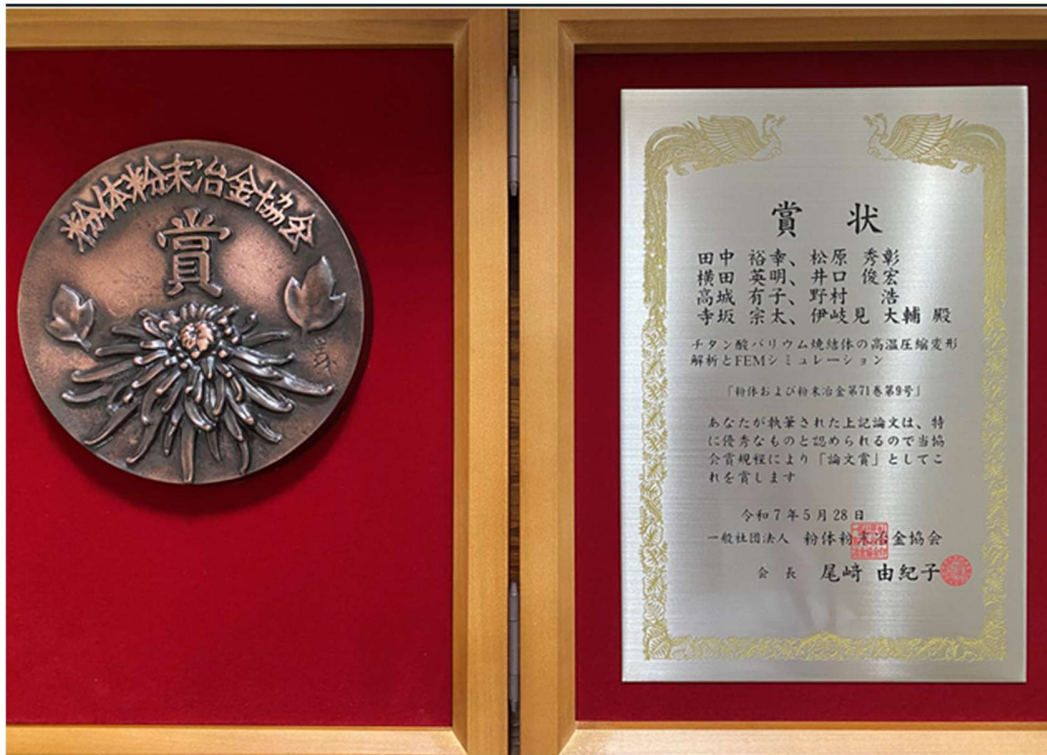 粉体粉末冶金協会
賞
賞 状
田中 裕幸、松原 秀彰
横田 英明、井口 俊宏
高城 有子、野村 浩
寺坂 宗太、伊岐見 大輔 殿
チタン酸バリウム焼結体の高温圧縮変形
解析とFEMシミュレーション
「粉体および粉末冶金第71巻第9号」
あなたが執筆された上記論文は、特
に優秀なものと認められるので当協
会賞規程により「論文賞」としてこ
れを賞します
令和7年5月28日
一般社団法人 粉体粉末冶金協会
会 長 尾﨑 由紀子